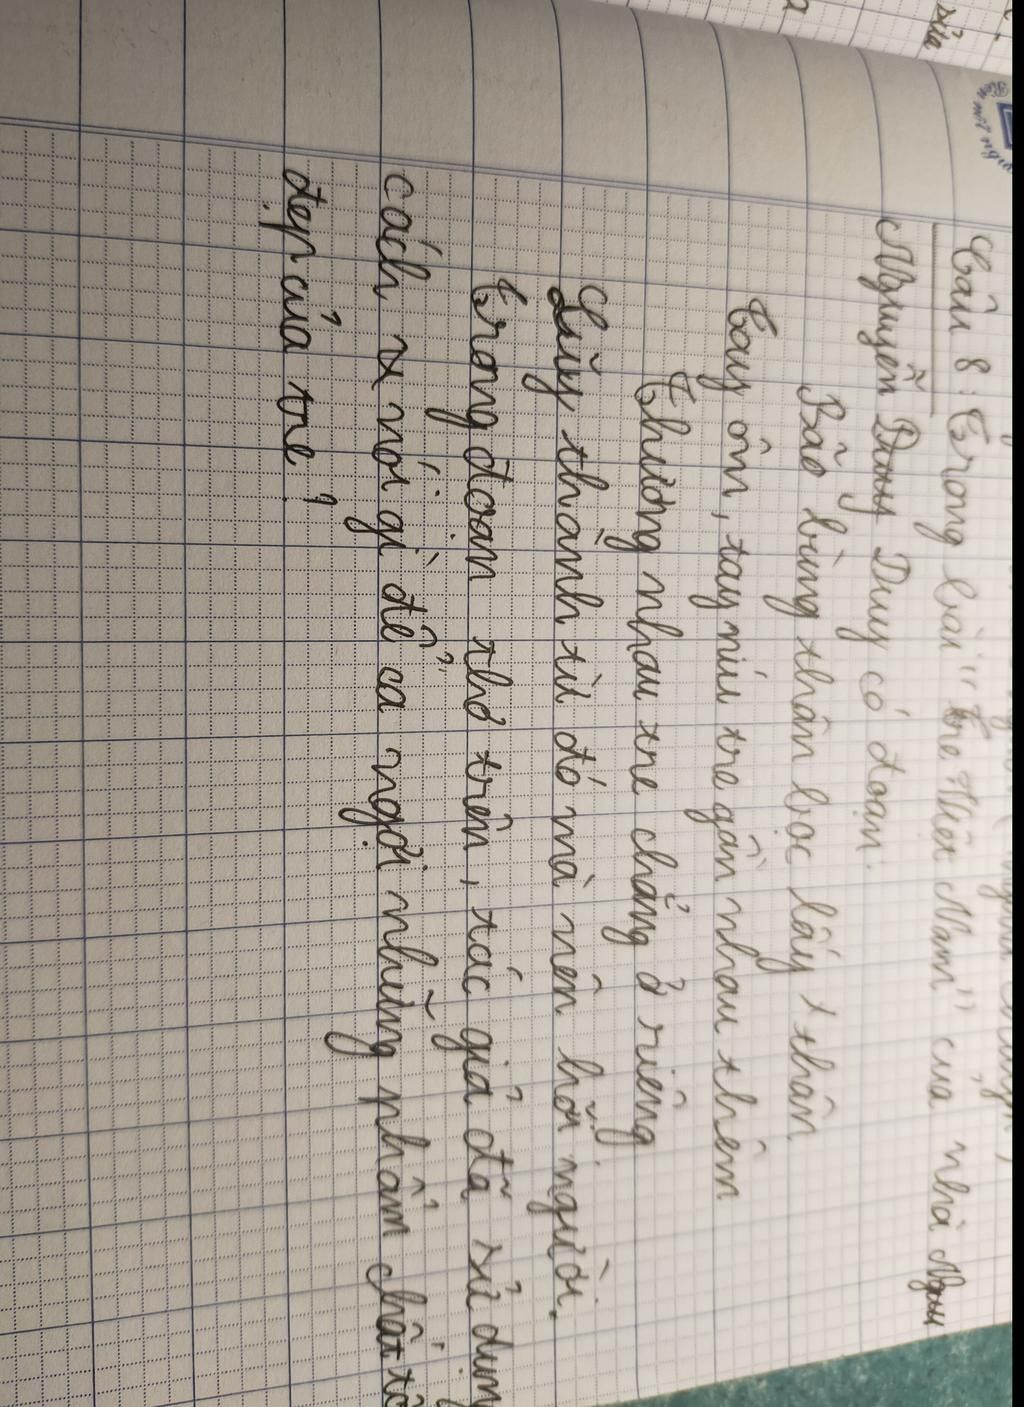 xỉa
Câu 8: Trong bài "Tre Việt Nam" của nhà
Nguyễn Duy có đoạn.
Bão bùng thân bọc lấy thân
Tay ôm, tay níu tre gần nhau thêm
Thương nhau tre chẳng ở riêng
Lũy thành từ đó mà nên hỡi người.
Trong đoạn thơ trên, tác giả đã sử dụng
cách nói gì để ca ngợi những phẩm chất tố
đẹp của tre?